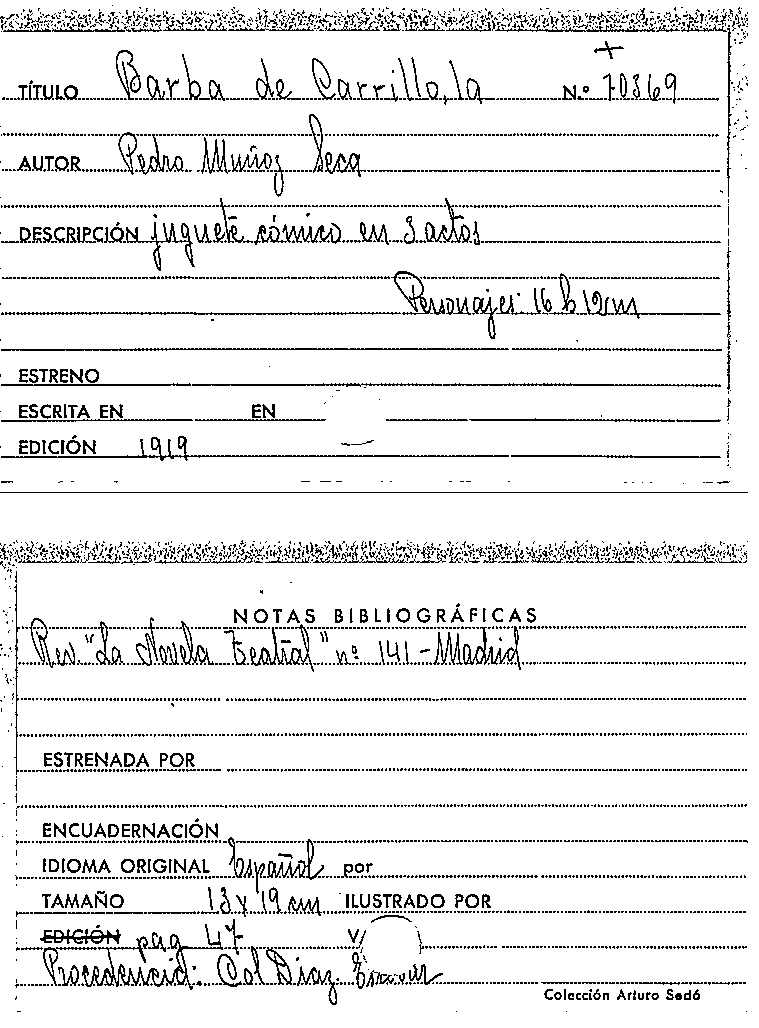 TÍTULO Barba de Carrillo, la N.º 70369
AUTOR Pedro Muñoz Seca
DESCRIPCIÓN juguete cómico en 3 actos
Personajes: 16 h 12 m
ESTRENO
ESCRITA EN EN
EDICIÓN 1919
NOTAS BIBLIOGRÁFICAS
Rev. "La Novela Teatral" nº 141 - Madrid
ESTRENADA POR
ENCUADERNACIÓN
IDIOMA ORIGINAL Español por
TAMAÑO 13 x 19 cm ILUSTRADO POR
EDICIÓN pag 47 V
Procedencia: Col Diaz. Escovar
Colección Arturo Sedó